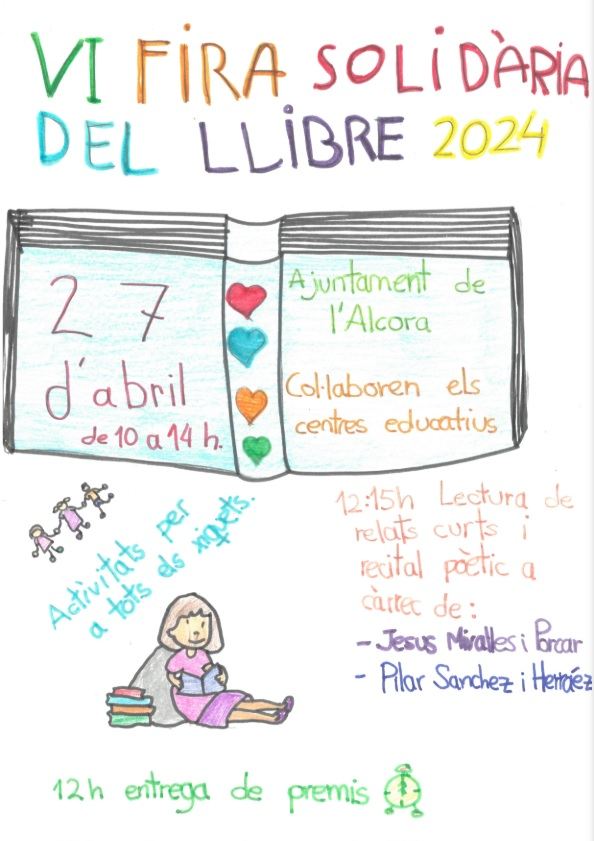 VI FIRA SOLIDÀRIA
DEL LLIBRE 2024
27
d'abril
de 10 a 14 h.
Ajuntament de
l'Alcora
Col·laboren els
centres educatius
Activitats per
a tots els xiquets.
12:15h Lectura de
relats curts i
recital poètic a
càrrec de:
- Jesus Miralles i Porcar
- Pilar Sanchez i Herráez
12h entrega de premis